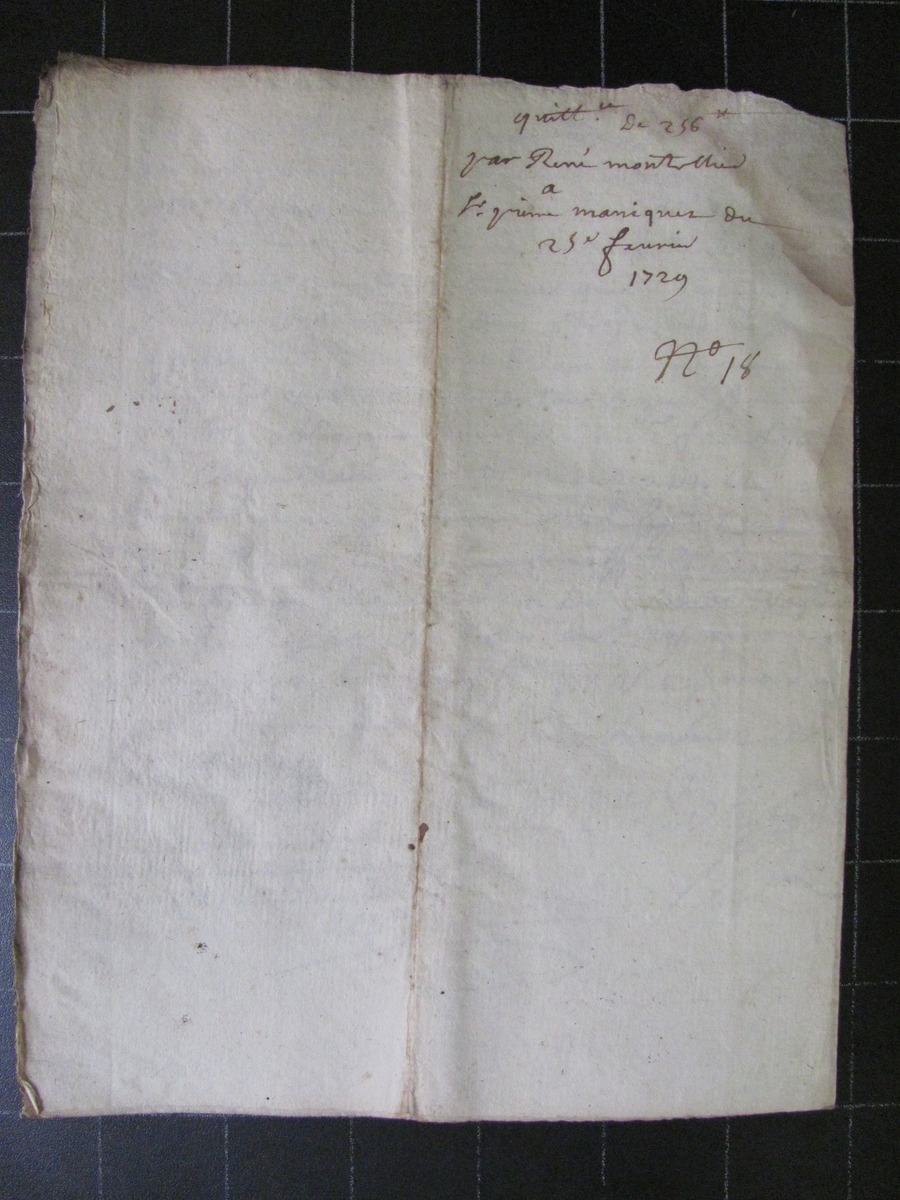 quitt.ce De 256 ##
par René montellier
a
Sr pierre maniquet du
25e feurier
1729
No 18